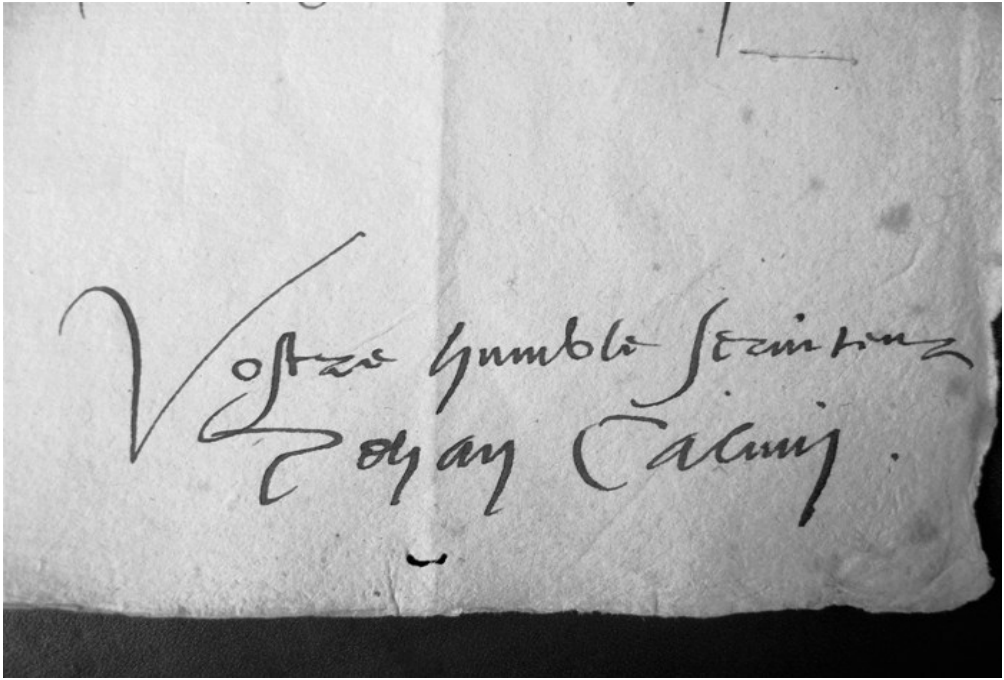 Vostre humble seruiteur
Jehan Caluin